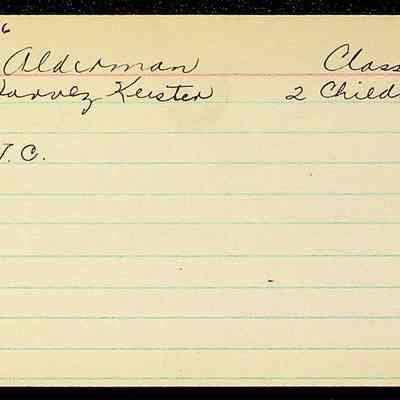 6
Alderman Class
Harvey Keister 2 Child
T. C.